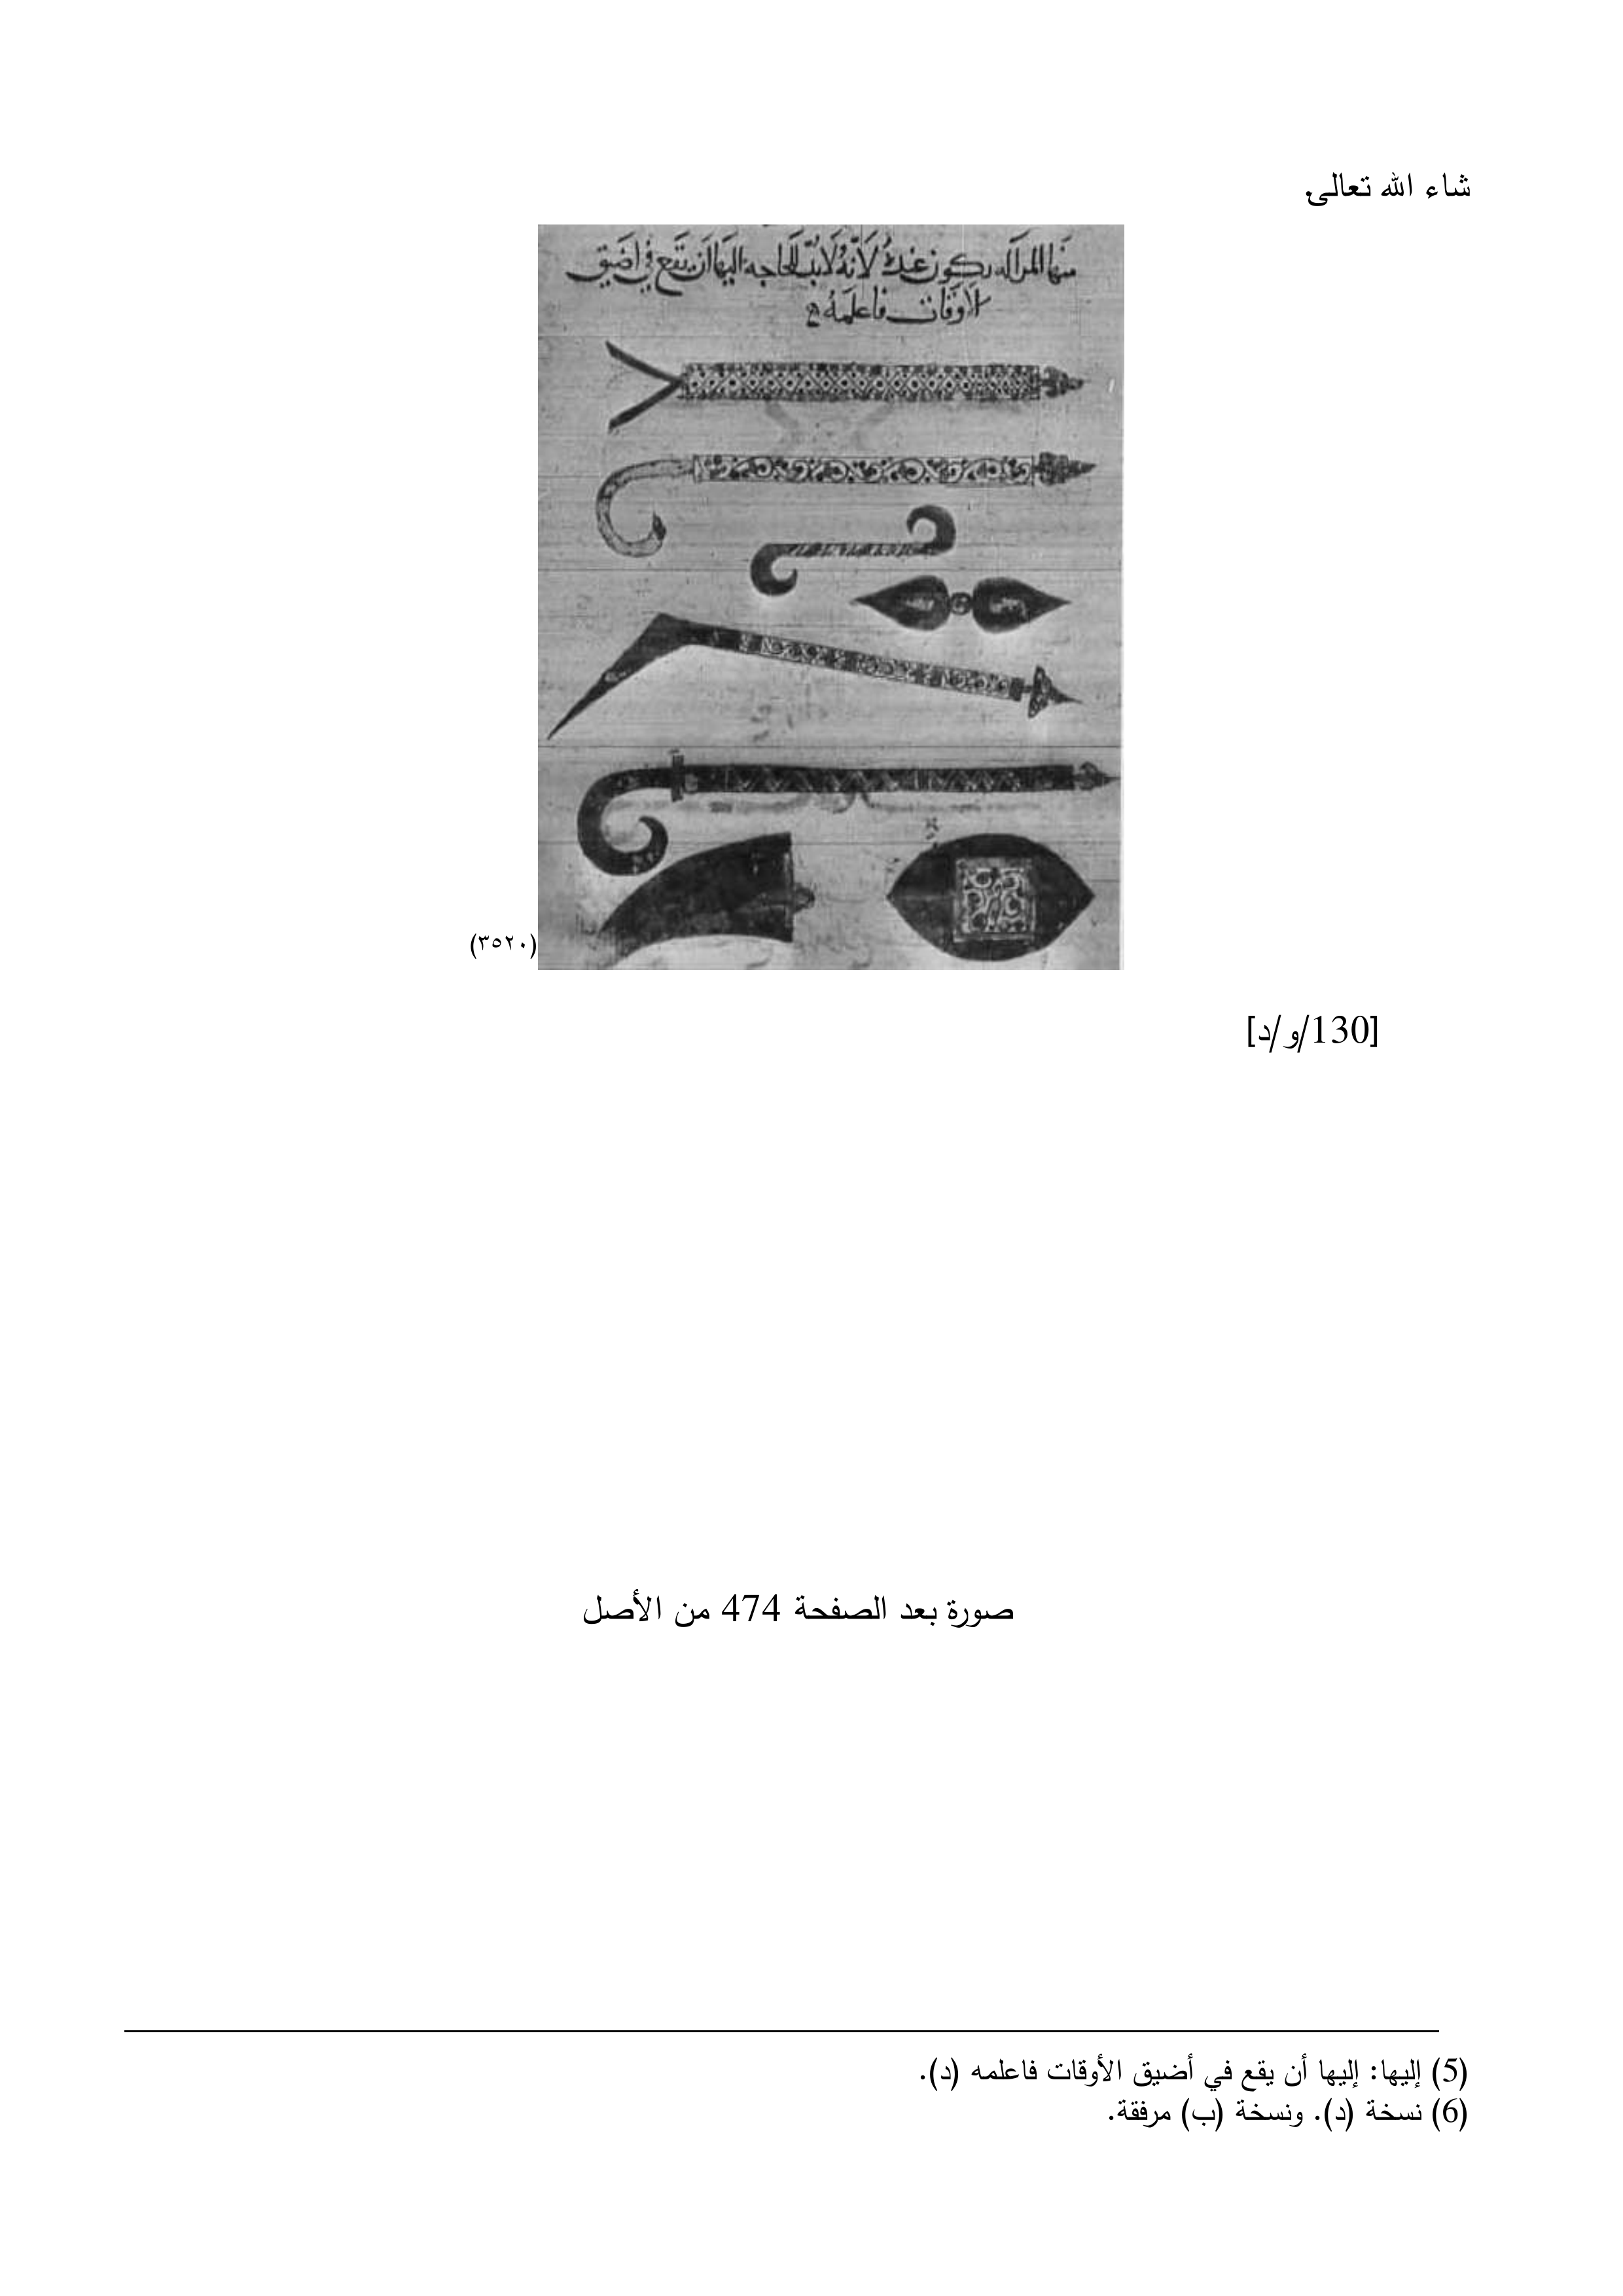 شاء الله تعالى.
منها المراكه يكون عندك لأنه لا بد للحاجه اليها ان يقع في اضيق
الاوقات فاعلمه
(٣٥٢٠)
[130/و/د]
صورة بعد الصفحة 474 من الأصل
(5) إليها: إليها أن يقع في أضيق الأوقات فاعلمه (د).
(6) نسخة (د). ونسخة (ب) مرفقة.